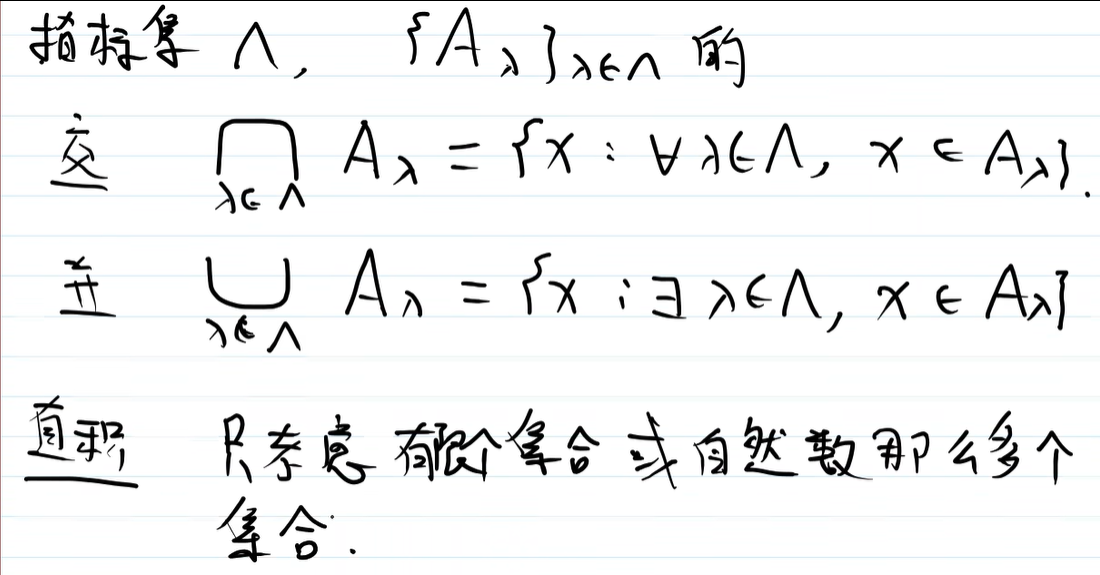 指标集 Λ, {A_λ}_{λ∈Λ} 的
交 ⋂_{λ∈Λ} A_λ = {x : ∀ λ∈Λ, x ∈ A_λ}.
并 ⋃_{λ∈Λ} A_λ = {x : ∃ λ∈Λ, x ∈ A_λ}
直积 只考虑有限个集合或自然数那么多个
集合.